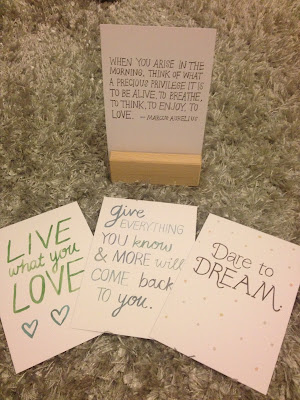 WHEN YOU ARISE IN THE
MORNING, THINK OF WHAT
A PRECIOUS PRIVILEGE IT IS
TO BE ALIVE, TO BREATHE,
TO THINK, TO ENJOY, TO
LOVE. — MARCUS AURELIUS
LIVE
what you
LOVE
give
EVERYTHING
YOU know
& MORE will
COME back
TO you.
Dare to
DREAM.